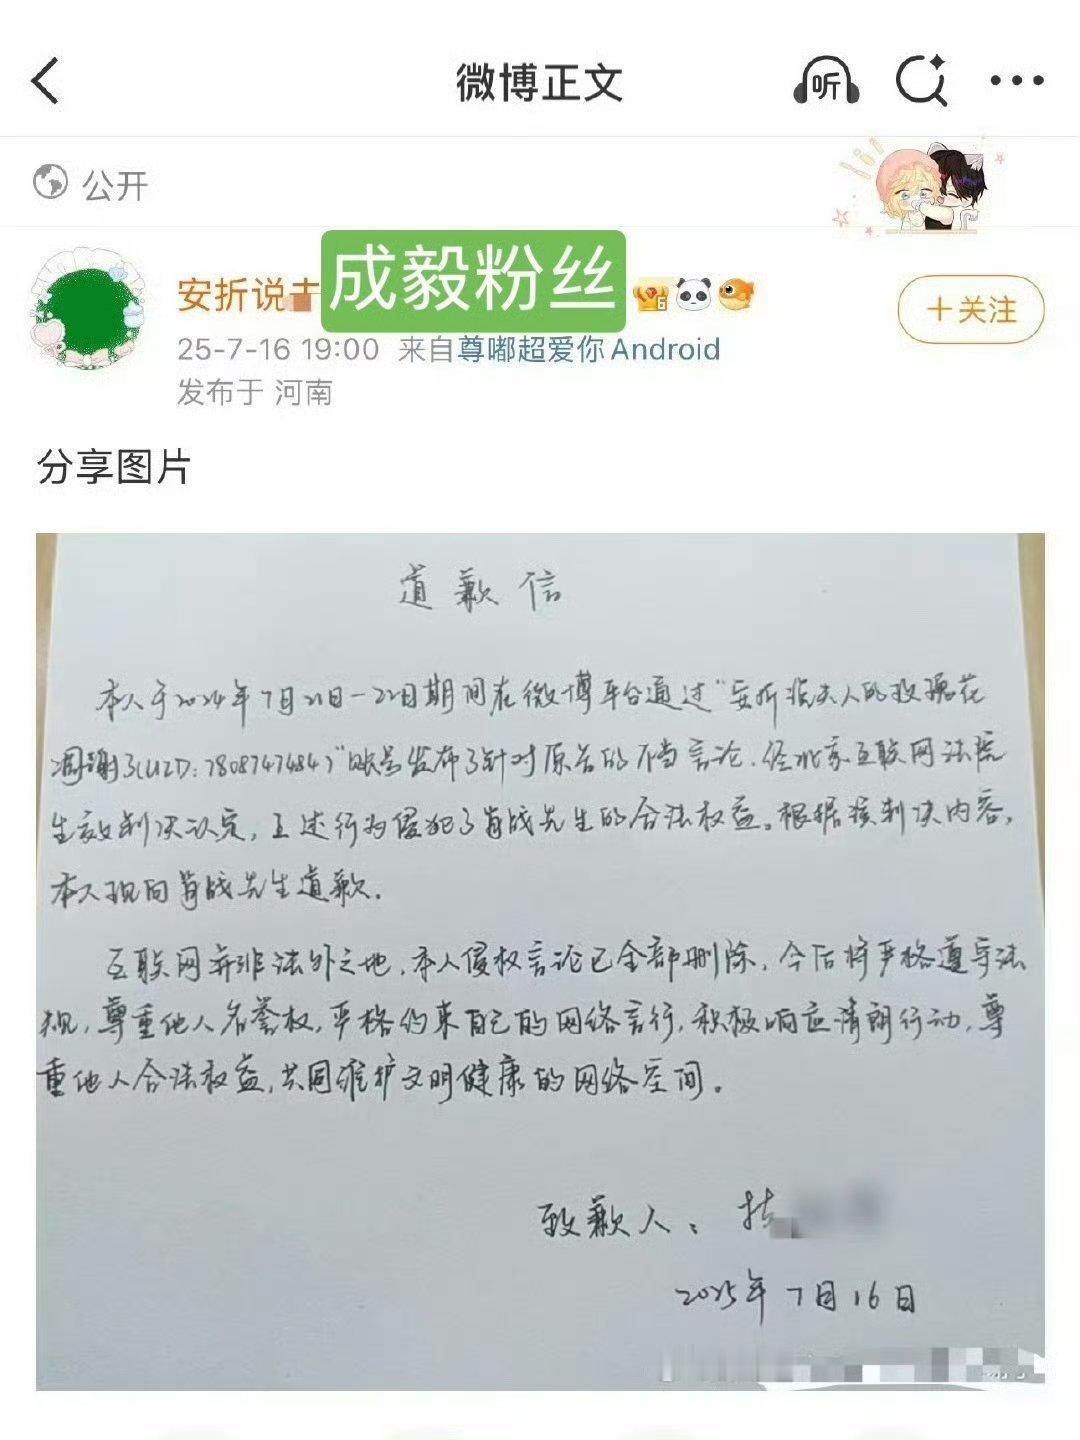 微博正文
听
公开
安折说
成毅粉丝
6
+关注
25-7-16 19:00 来自尊嘟超爱你Android
发布于 河南
分享图片
道歉信
本人于2024年7月21日-22日期间在微博平台通过"安折说夫人的玫瑰花
凋谢了(UID:7808747484)"账号发布了针对原告的不当言论,经北京互联网法院
生效判决认定,上述行为侵犯了肖战先生的合法权益。根据该判决内容,
本人现向肖战先生道歉.
互联网并非法外之地,本人侵权言论已全部删除,今后将严格遵守法
规,尊重他人名誉权,严格约束自己的网络言行,积极响应清朗行动,尊
重他人合法权益,共同维护文明健康的网络空间。
致歉人:
2025年7月16日